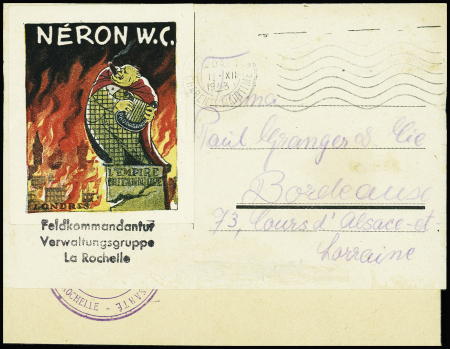 NÉRON W.C.
L'EMPIRE
BRITANNIQUE
LONDRES
Feldkommandantur
Verwaltungsgruppe
La Rochelle
ROCHELLE - SANTE
XII
1943
Paul Granger & Cie
Bordeaux
73, Cours d'Alsace-et
Lorraine